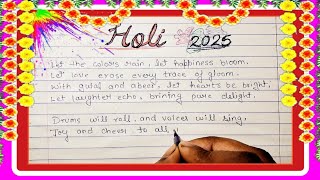 Holi 2025
Let the colors rain, let happiness bloom.
Let love erase every trace of gloom.
With gulal and abeer, let hearts be bright,
Let laughter echo, brining pure delight.
Drums will roll and voices will sing,
Joy and cheers to all